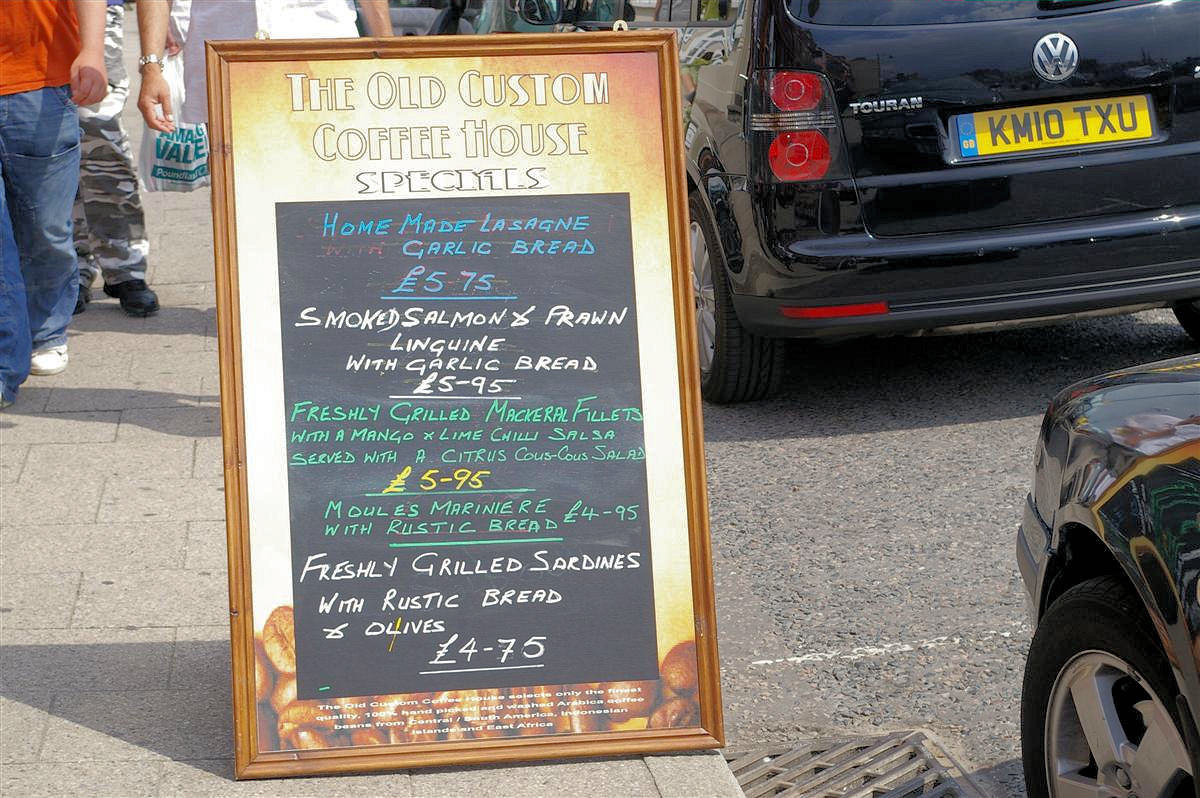 THE OLD CUSTOM
COFFEE HOUSE
SPECIALS
HOME MADE LASAGNE
WITH GARLIC BREAD
£5-75
SMOKED SALMON & PRAWN
LINGUINE
WITH GARLIC BREAD
£5-95
FRESHLY GRILLED MACKERAL FILLETS
WITH A MANGO & LIME CHILLI SALSA
SERVED WITH A CITRUS COUS-COUS SALAD
£5-95
MOULES MARINIERE £4-95
WITH RUSTIC BREAD
FRESHLY GRILLED SARDINES
WITH RUSTIC BREAD
& OLIVES
£4-75
The Old Custom Coffee House selects only the finest
quality, 100% hand picked and washed Arabica coffee
beans from Central / South America, Indonesian
Islands and East Africa
TOURAN
GB
KM10 TXU
VW
VALUE
Poundland